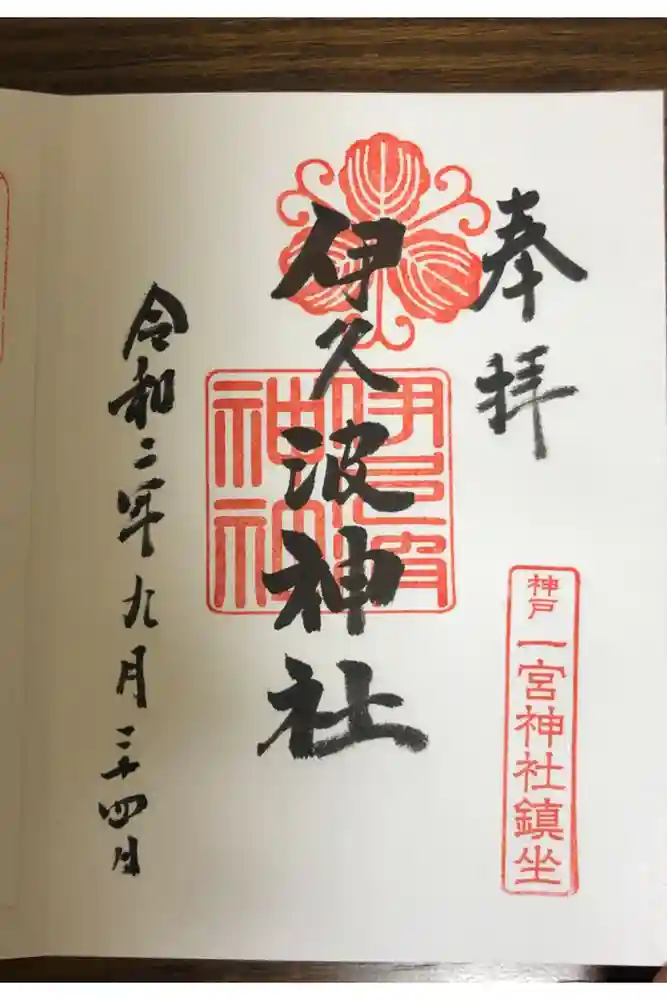 奉拝
神戸一宮神社鎮坐
伊久波神社
令和二年九月二十四日